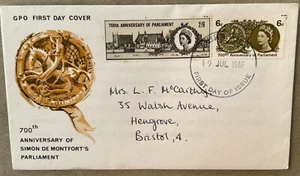 GPO FIRST DAY COVER
700TH ANNIVERSARY OF PARLIAMENT
2/6
6D
700th Anniversary of Parliament
19 JUL 1965
FIRST DAY OF ISSUE
Mrs. L. F. McCarthy
35 Walsh Avenue,
Hengrove,
Bristol, 4.
700th
ANNIVERSARY OF
SIMON DE MONTFORT'S
PARLIAMENT